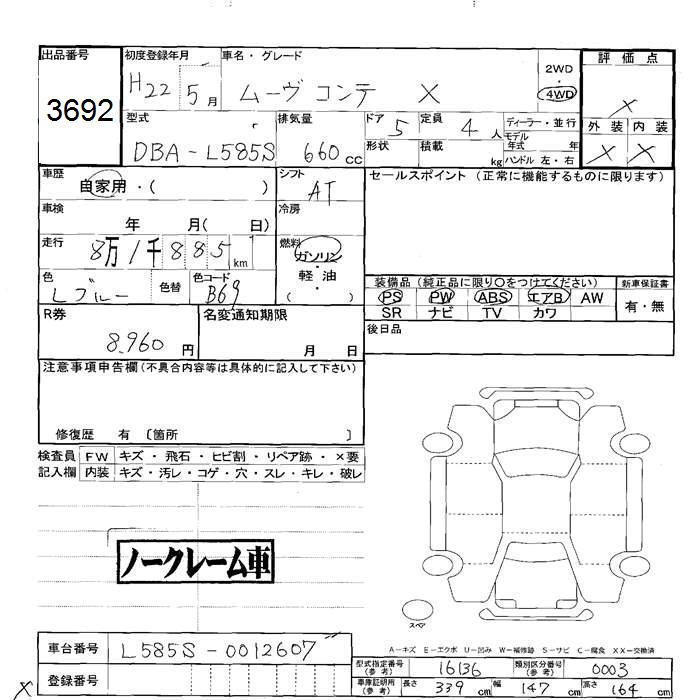 出品番号
3692
初度登録年月
H22 5月
車名・グレード
ムーヴ コンテ X
2WD
・
4WD
評価点
X
外装 内装
X X
型式
DBA-L585S
排気量
660cc
ドア
5
定員
4人
形状
積載
kg
ディーラー・並行
モデル
年式 年
ハンドル 左・右
車歴
自家用・( )
シフト
AT
セールスポイント (正常に機能するものに限ります)
車検
年 月( 日)
冷房
走行
8万1千885km
燃料
ガソリン
・
軽油
( )
色
Lブルー
色替
色コード
B69
装備品 (純正品に限り〇をつけてください)
新車保証書
PS PW ABS エアB AW
有・無
SR ナビ TV カワ
R券
8,960円
名変通知期限
月 日
後日品
注意事項申告欄(不具合内容等は具体的に記入して下さい)
修復歴 有 〔箇所 〕
検査員 FW キズ・飛石・ヒビ割・リペア跡・×要
記入欄 内装 キズ・汚レ・コゲ・穴・スレ・キレ・破レ
ノークレーム車
スペア
A-キズ E-エクボ U-凹み W-補修跡 S-サビ C-腐食 XX-交換済
車台番号 L585S-0012607
登録番号
X
型式指定番号
(参考)
16136
類別区分番号
(参考)
0003
車庫証明用
(参考)
長さ 339cm 幅 147cm 高さ 164cm